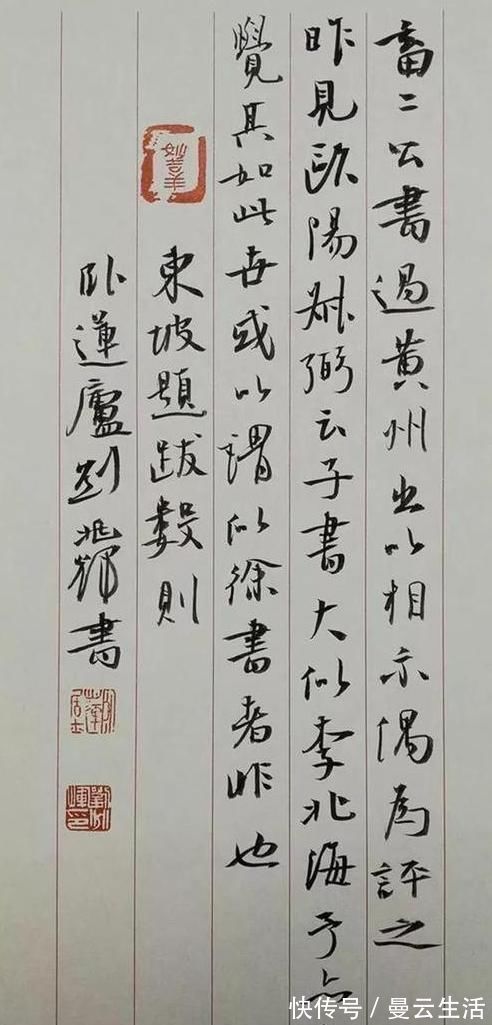 畜二公書過黃州出以相示偶為評之
昨見歐陽叔弼云子書大似李北海予亦
覺其如此世或以謂似徐書者非也
東坡題跋數則
卧蓮廬劉兆輝書
快传号/曼云生活